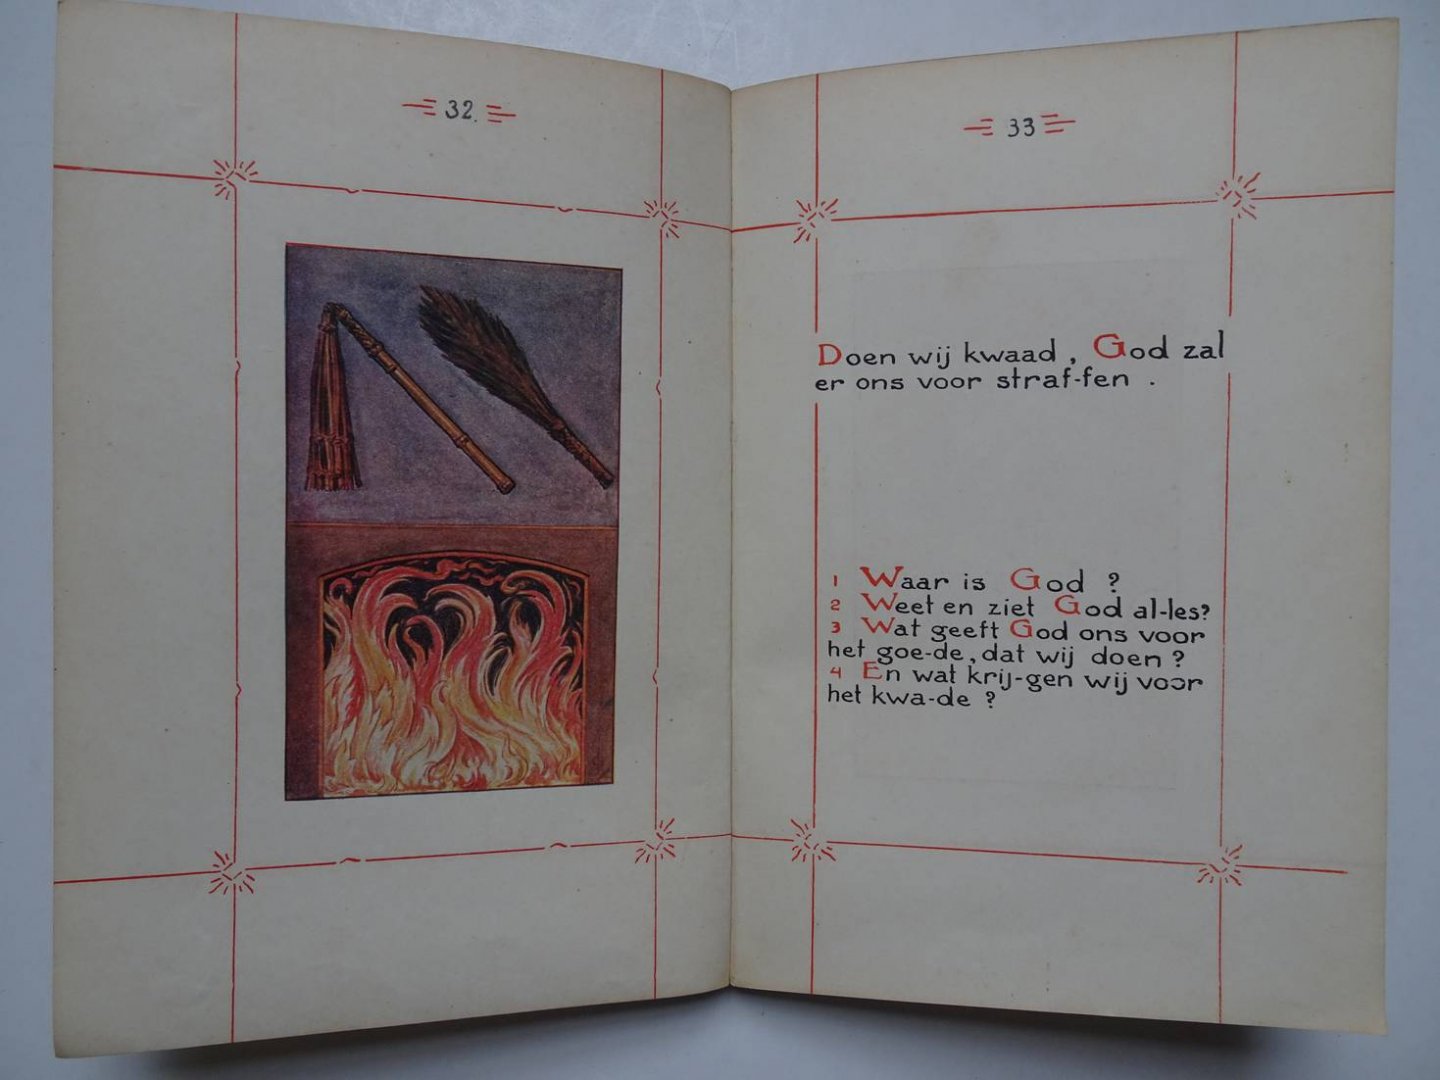 32.
33
Doen wij kwaad, God zal
er ons voor straf-fen .
1 Waar is God ?
2 Weet en ziet God al-les?
3 Wat geeft God ons voor
het goe-de, dat wij doen ?
4 En wat krij-gen wij voor
het kwa-de ?